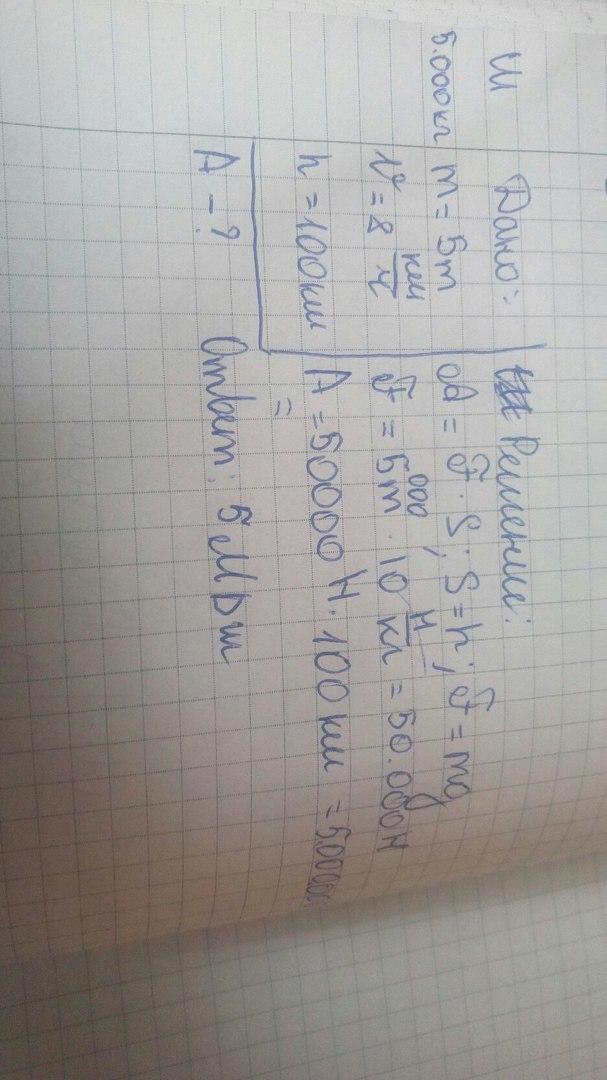 Ш Дано: Решение:
5.000кг m = 5т A = F · S; S = h; F = mg
v = 8 км/ч F = 5т000 · 10 Н/кг = 50.000Н
h = 100км A = 50000 Н · 100км = 5.000000
=
A - ? Ответ: 5 МДж